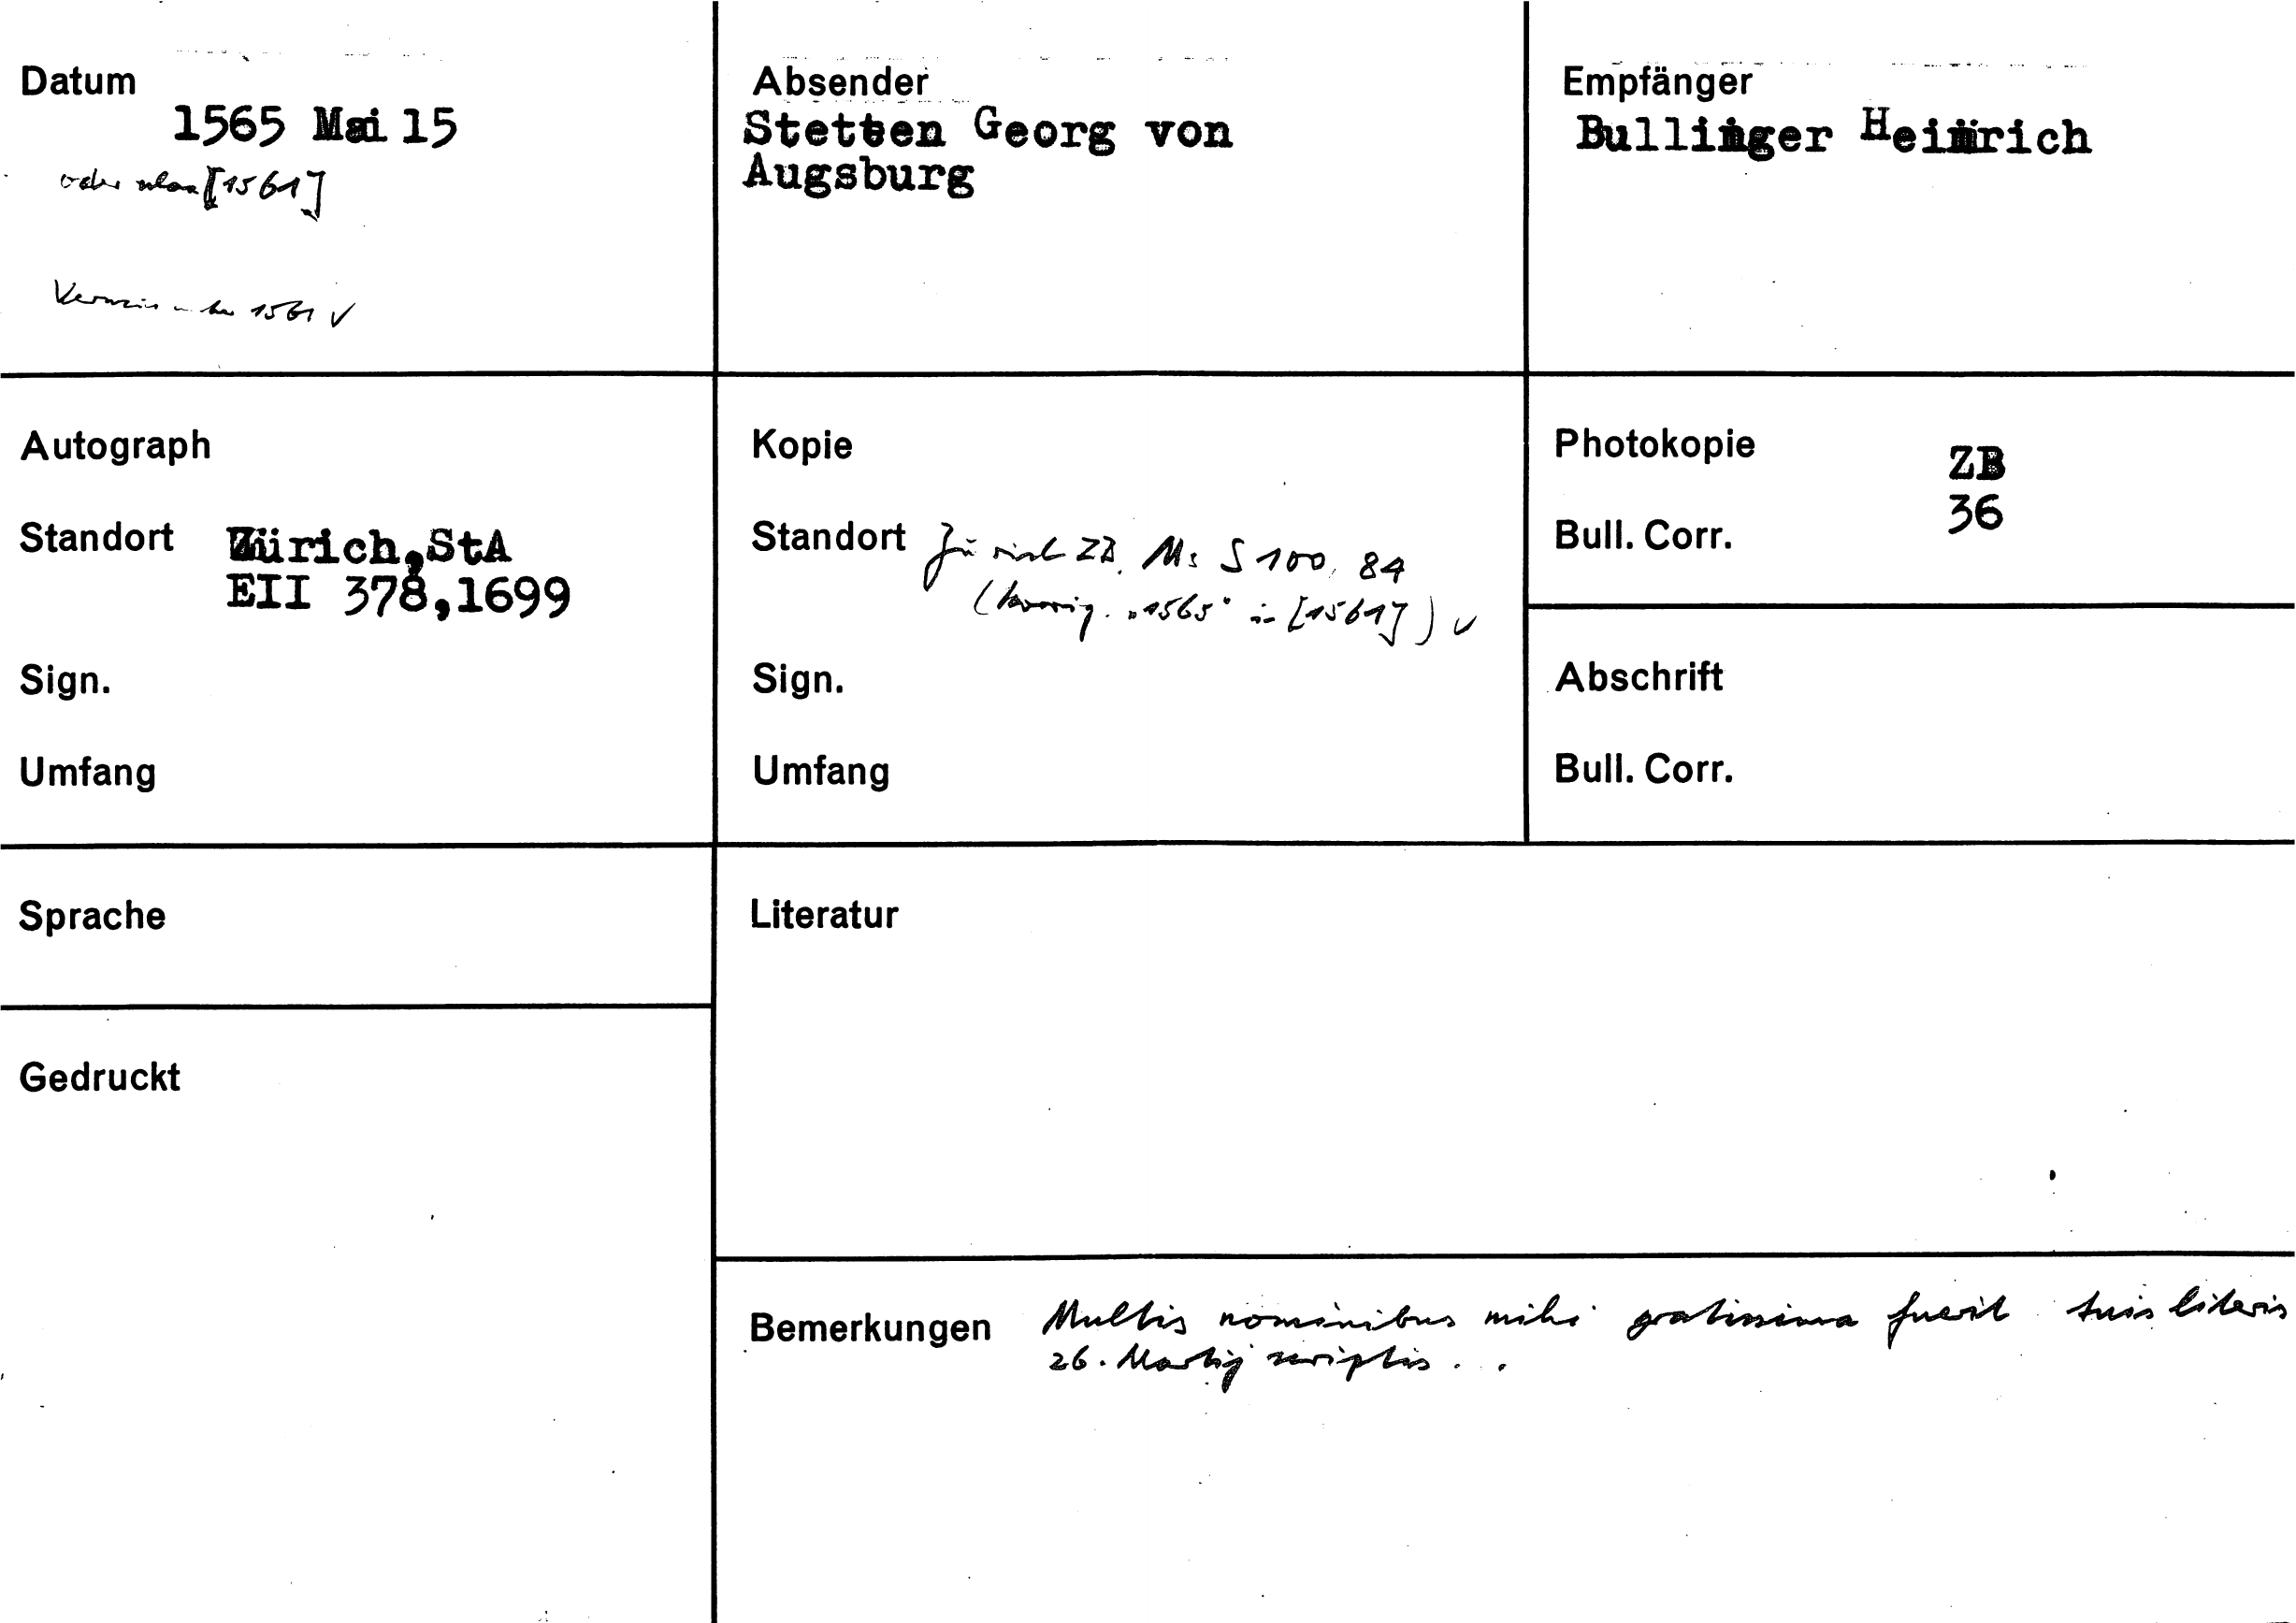 Datum
1565 Mai 15
oder [1561]
Verweis unter 1561 √
Absender
Stetten Georg von
Augsburg
Empfänger
Bullinger Heinrich
Autograph
Standort Zürich,StA
EII 378,1699
Sign.
Umfang
Kopie
Standort Zürich ZB, Ms S 100, 84
(korrig. "1565" in [1561]) √
Sign.
Umfang
Photokopie ZB
Bull. Corr. 36
Abschrift
Bull. Corr.
Sprache
Literatur
Gedruckt
Bemerkungen Multis nominibus mihi gratissima fuerit tuis literis
26. Martij scriptis...